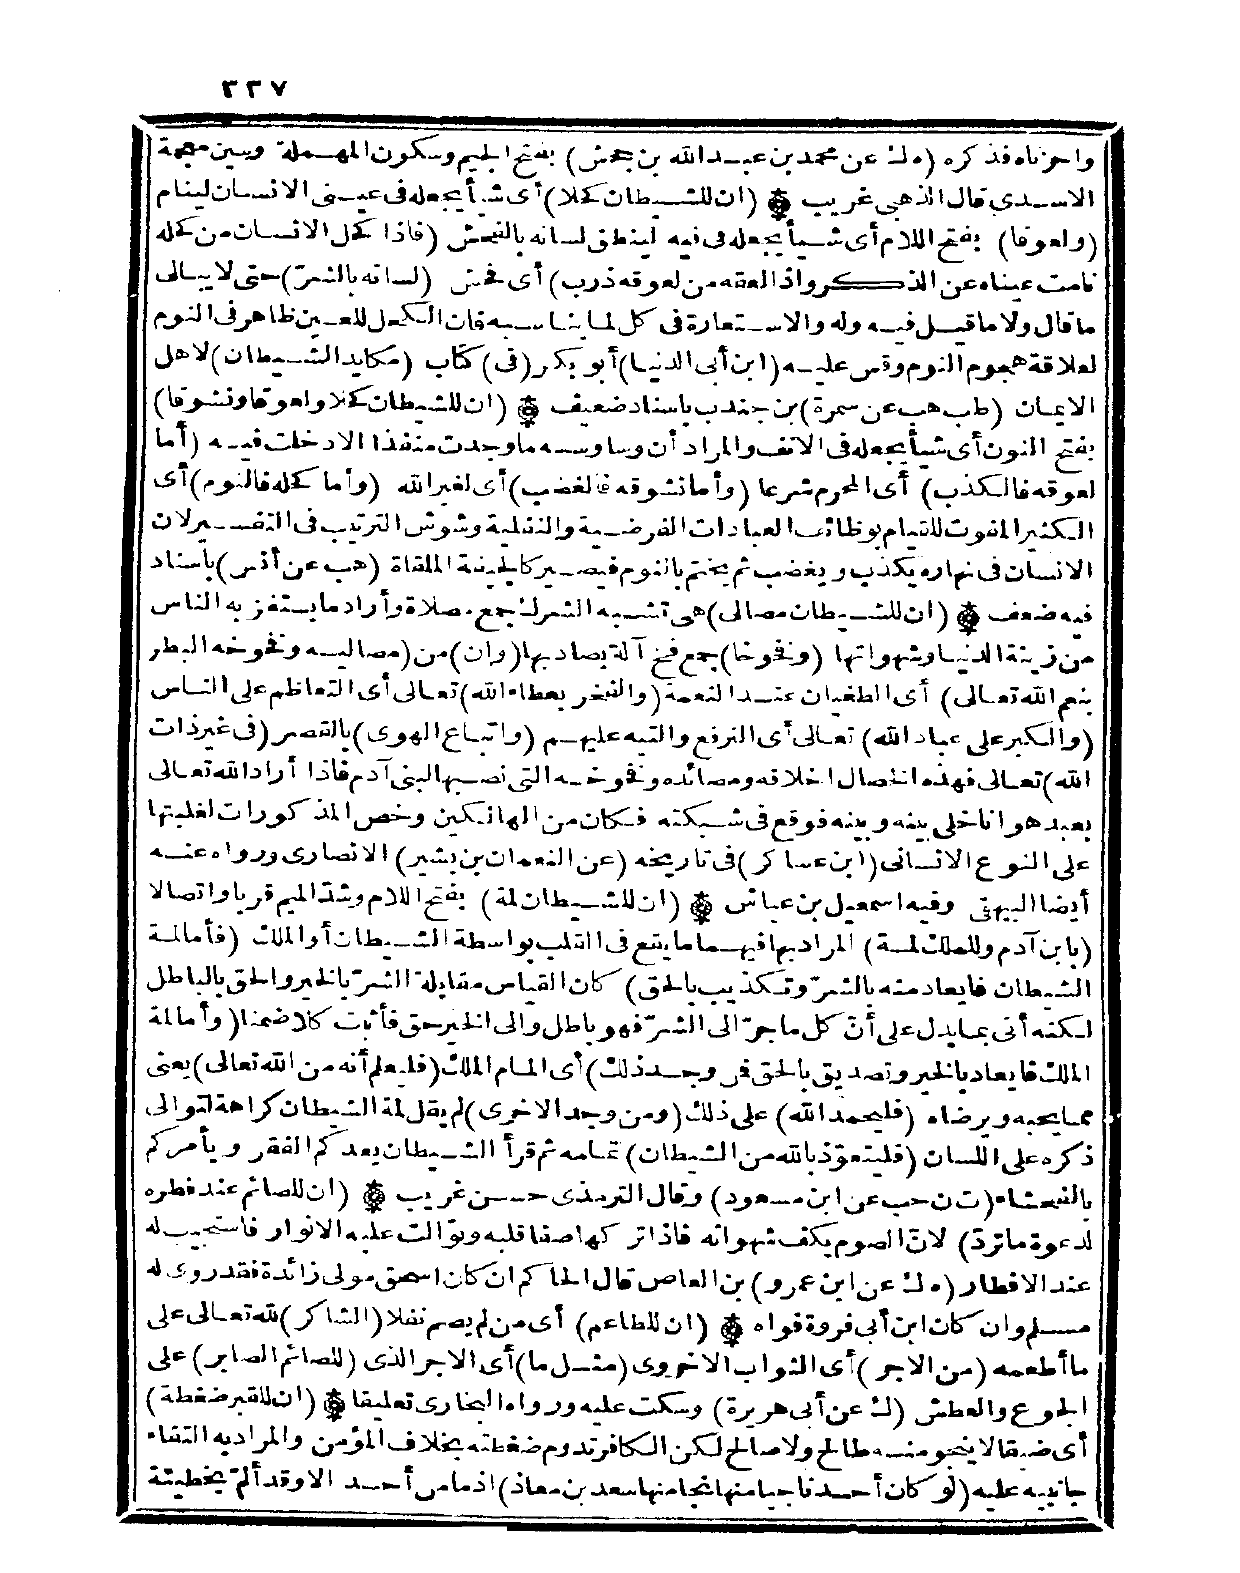 ٣٣٧
واحزناه فذكره (ه ك عن محمد بن عبد الله بن جحش) بفتح الجيم وسكون المهملة وشين معجمة
الاسدى قال الذهبى غريب ۞ (ان للشيطان كحلا) أى شيأ يجعله فى عينى الانسان لينام
(ولعوقا) بفتح اللام أى شيأ يجعله فى فيه لينطق لسانه بالفحش (فاذا كحل الانسان من كحله
نامت عيناه عن الذكر واذا لعقه من لعوقه ذرب) أى فحش (لسانه بالشر) حتى لا يبالى
ما قال ولا ما قيل فيه وله والاستعارة فى كل لمايناسبه فان الكحل للعين ظاهر فى النوم
لعلاقة هجوم النوم وقس عليه (ابن أبى الدنيا) أبو بكر (فى) كتاب (مكايد الشيطان) لاهل
الايمان (طب هب عن سمرة) بن جندب باسناد ضعيف ۞ (ان للشيطان كحلا ولعوقا ونشوقا)
بفتح النون أى شيأ يجعله فى الانف والمراد أن وساوسه ما وجدت منفذا الا دخلت فيه (أما
لعوقه فالكذب) أى المحرم شرعا (وأما نشوقه فالغضب) أى لغير الله (وأما كحله فالنوم) أى
الكثير المفوت للقيام بوظائف العبادات الفرضية والنفلية وشوش الترتيب فى التفسير لان
الانسان فى نهاره يكذب ويغضب ثم يختم بالنوم فيصير كالجيفة الملقاة (هب عن أنس) باسناد
فيه ضعف ۞ (ان للشيطان مصالى) هى تشبه الشرك جمع مصلاة وأراد ما يستفز به الناس
من زينة الدنيا وشهواتها (وفخوخا) جمع فخ آلة يصاد بها (وان) من (مصاليه وفخوخه البطر
بنعم الله تعالى) أى الطغيان عند النعمة (والفخر بعطاء الله) تعالى أى التعاظم على الناس
(والكبر على عباد الله) تعالى أى الترفع والتيه عليهم (واتباع الهوى) بالقصر (فى غير ذات
الله) تعالى فهذه الخصال اخلاقه ومصائده وفخوخه التى نصبها لبنى آدم فاذا أراد الله تعالى
بعبد هوانا خلى بينه وبينه فوقع فى شبكته فكان من الهالكين وخص المذكورات لغلبتها
على النوع الانسانى (ابن عساكر) فى تاريخه (عن النعمان بن بشير) الانصارى ورواه عنه
أيضا البيهقى وفيه اسمعيل بن عياش ۞ (ان للشيطان لمة) بفتح اللام وشد الميم قربا واتصالا
(بابن آدم وللملك لمة) المراد بها فيهما ما يقع فى القلب بواسطة الشيطان أو الملك (فأما لمة
الشيطان فايعاد منه بالشر وتكذيب بالحق) كان القياس مقابلة الشر بالخير والحق بالباطل
لكنه أتى بما يدل على أن كل ما جر الى الشر فهو باطل والى الخير حق فأثبت كلا ضمنا (وأما لمة
الملك فايعاد بالخير وتصديق بالحق فمن وجد ذلك) أى المام الملك (فليعلم أنه من الله تعالى) يعنى
مما يحبه ويرضاه (فليحمد الله) على ذلك (ومن وجد الاخرى) لم يقل لمة الشيطان كراهة لتوالى
ذكره على اللسان (فليتعوذ بالله من الشيطان) تمامه ثم قرأ الشيطان يعدكم الفقر ويأمركم
بالفحشاء (ت ن حب عن ابن مسعود) وقال الترمذى حسن غريب ۞ (ان للصائم عند فطره
لدعوة ما ترد) لان الصوم يكف شهواته فاذا تركها صفا قلبه وتوالت عليه الانوار فاستجيب له
عند الافطار (ه ك عن ابن عمرو) بن العاص قال الحاكم ان كان اسحق مولى زائدة فقد روى له
مسلم وان كان ابن أبى فروة فواه ۞ (ان للطاعم) أى من لم يصم نفلا (الشاكر) لله تعالى على
ما أطعمه (من الاجر) أى الثواب الاخروى (مثل ما) أى الاجر الذى (للصائم الصابر) على
الجوع والعطش (ك عن أبى هريرة) وسكت عليه ورواه البخارى تعليقا ۞ (ان للقبر ضغطة)
أى ضيقا لا ينجو منه طالح ولا صالح لكن الكافر تدوم ضغطته بخلاف المؤمن والمراد به التقاء
جانبيه عليه (لو كان أحد ناجيا منها نجا منها سعد بن معاذ) اذ ما من أحد الا وقد ألم بخطيئة